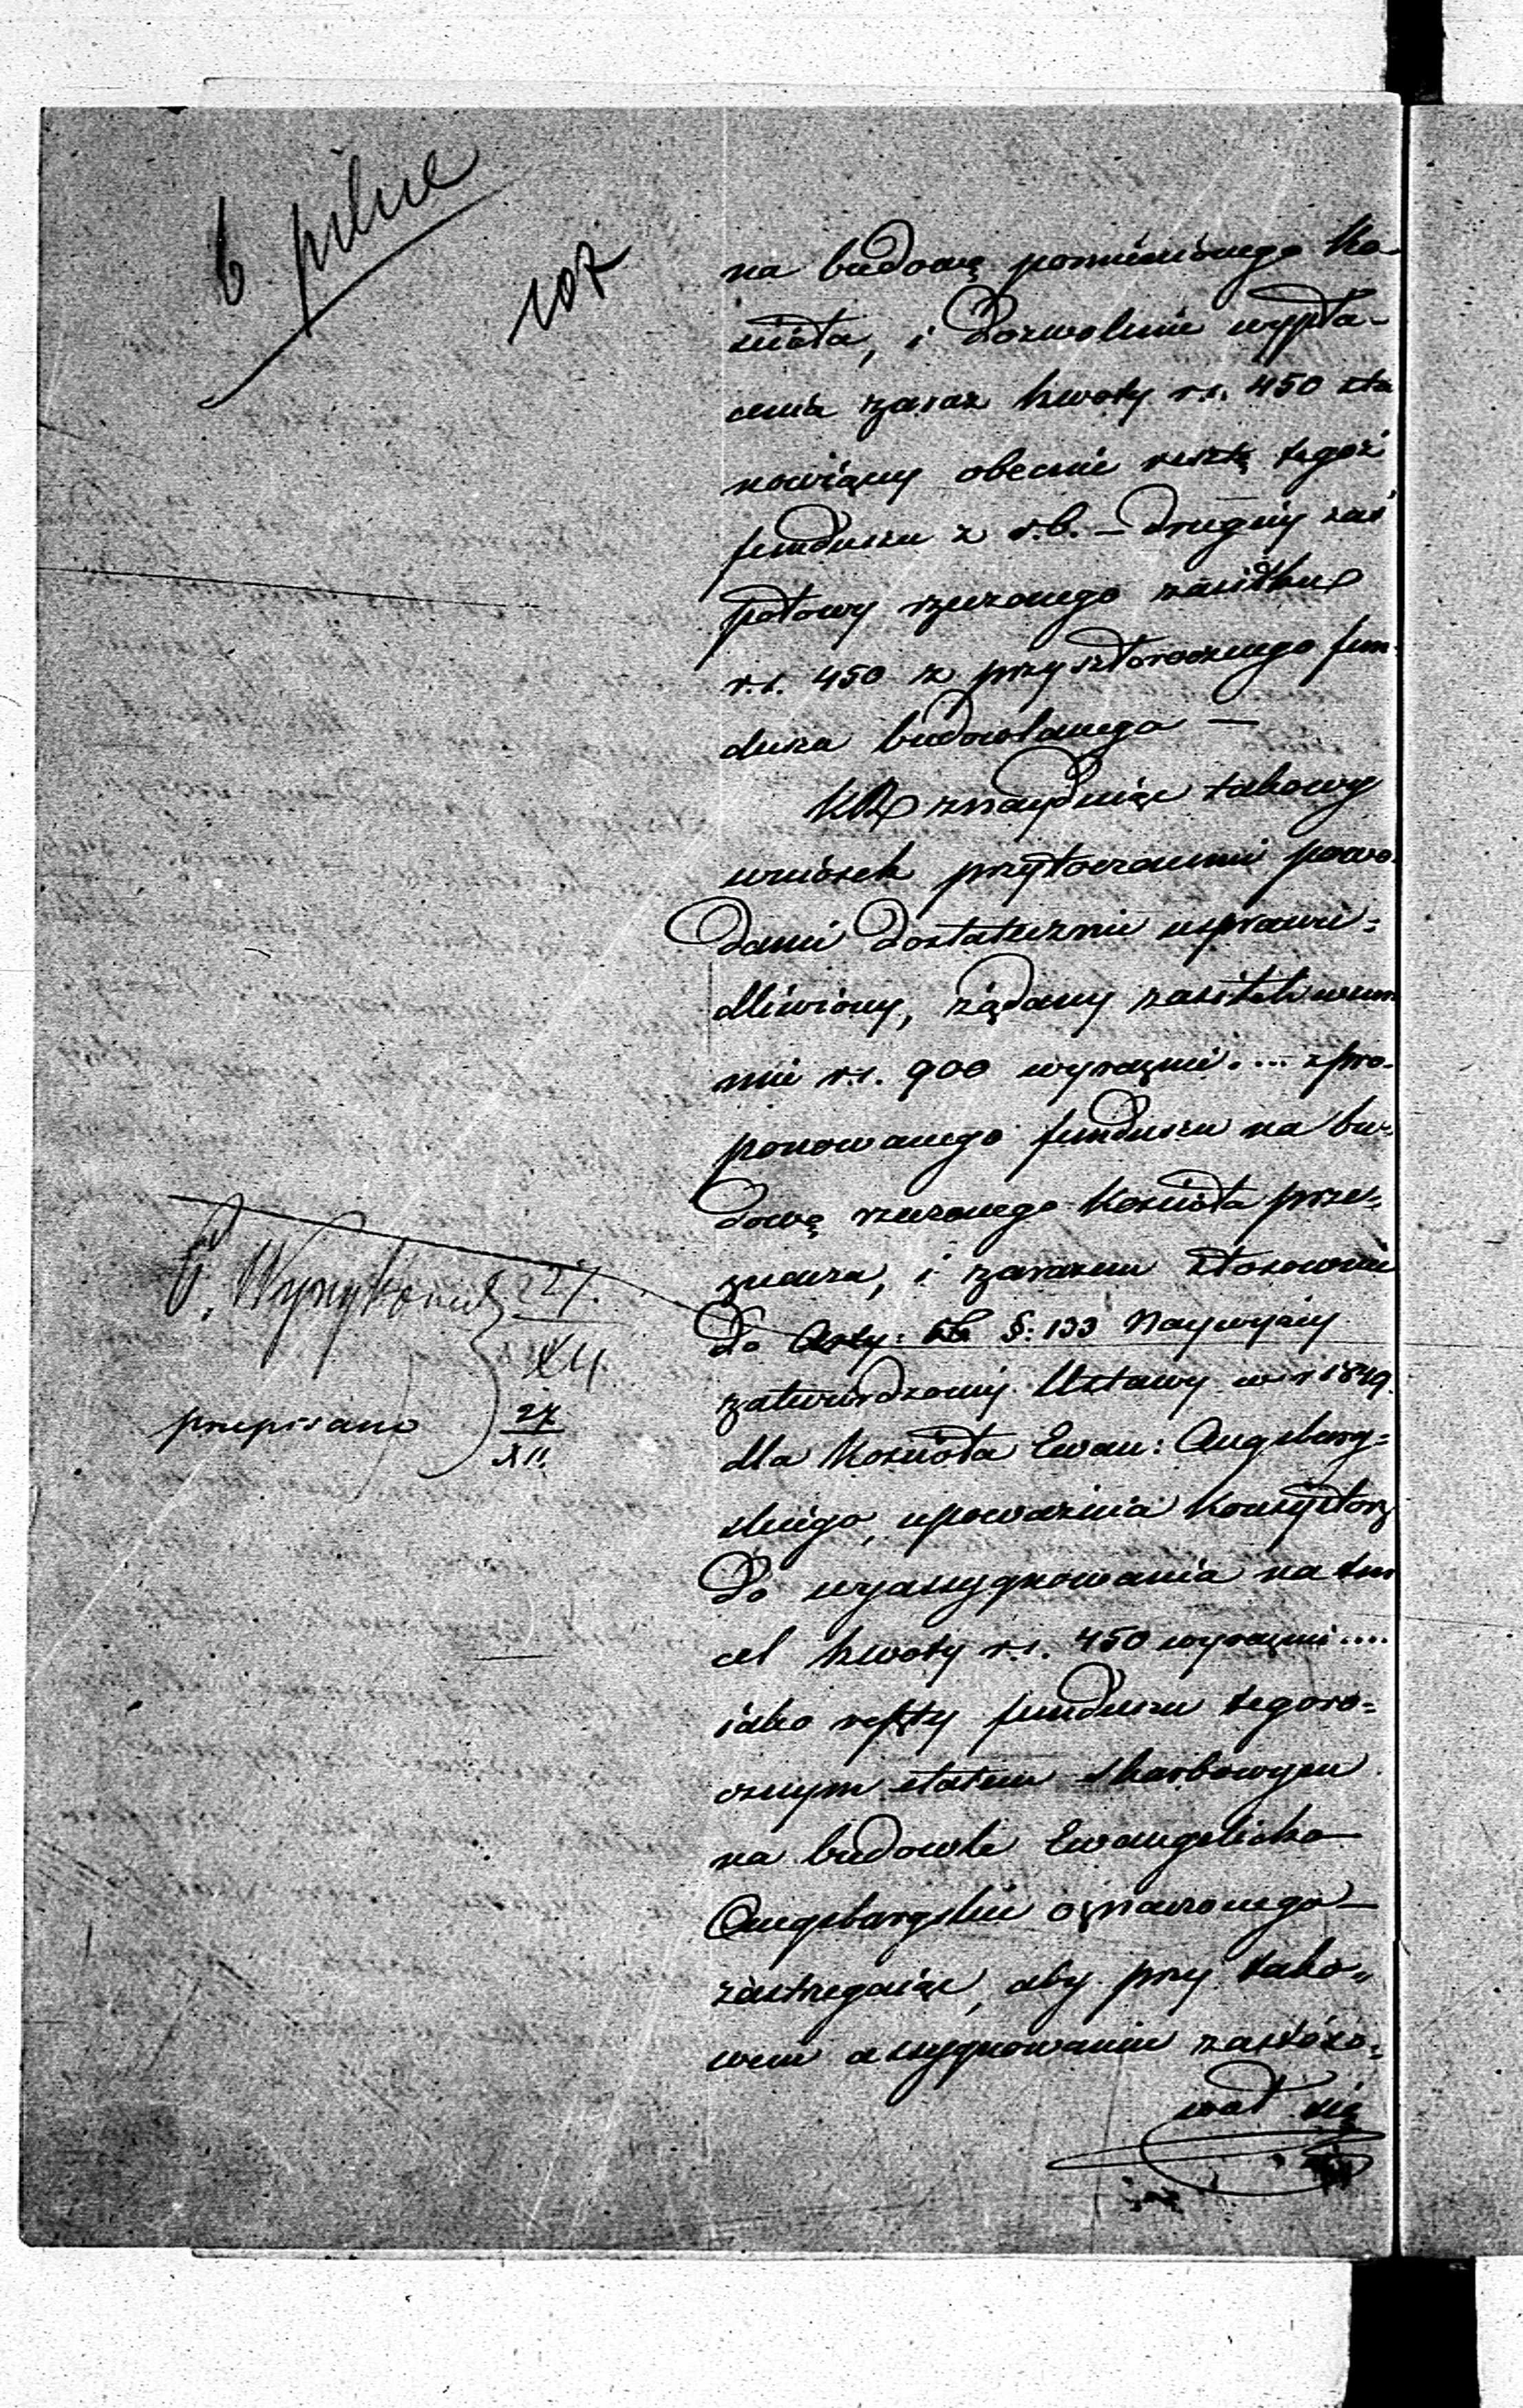 pilne
107
na budowę pomienionego Ko-
ścioła, i dozwolenie wypła-
cenia zaraz kwoty r.s. 450 sta
nowiący obecnie resztę tegoż
funduszu z r.b. — drugiéy zaś
połowy rzeczonego zasiłku
r.s. 450 z przyszłorocznego fun-
duszu budowlanego —
KR znayduiąc takowy
wniosek przytoczonemi powo-
dami dostatecznie usprawie-
dliwiony, żądany zasiłek w sum
mie r.s. 900 wyraźnie .... z pro-
ponowanego funduszu na bu-
dowę rzeczonego kościoła prze-
znacza, i zarazem stosownie
do §: 133 Naywyżey
zatwierdzoney Ustawy w r 1849.
dla Kościoła Ewan: Augsburg=
skiego, upoważnia Konsystorz
do wyassygnowania na ten
cel kwoty r.s. 450 wyraźnie ....
iako reszty funduszu tegoro=
cznym etatem skarbowym
na budowle Ewangelicko
Augsburgskie oznaczonego —
zastrzegaiąc, aby przy tako=
wem assygnowaniu zastoso=
wał się
27.
XII.
przepisano 27
XII.